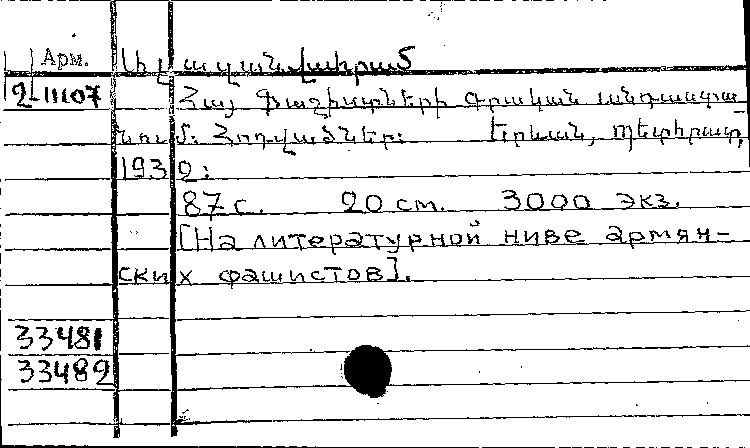 Арм. Ալազան, Վահրամ
2-11107 Հայ Ֆաշիստների գրական անդաստա
նում: Հոդվածներ: Երևան, Պետհրատ,
1932:
87 с. 20 см. 3000 экз.
[На литературной ниве армян-
ских фашистов].
33481
33482